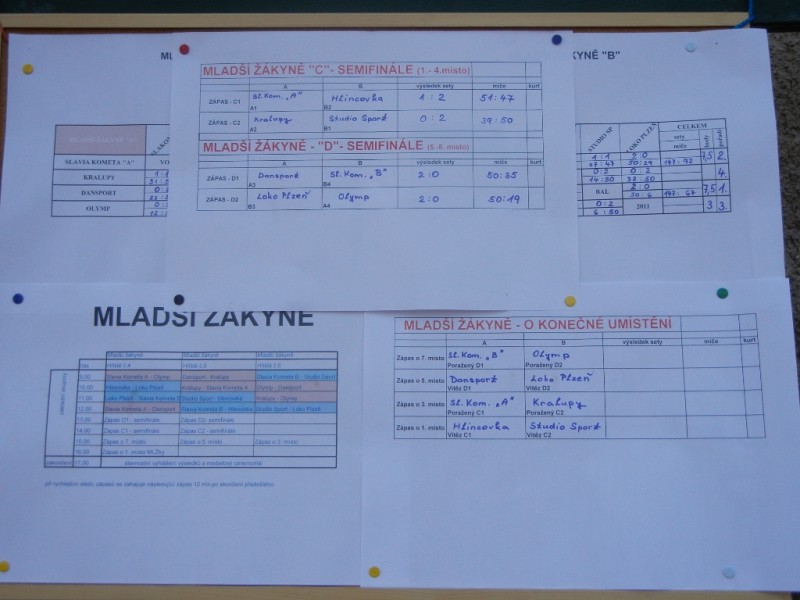 ML
MLADŠÍ ŽÁKYNĚ "C"- SEMIFINÁLE (1.- 4.místo)
A B výsledek sety míče kurt
ZÁPAS - C1 Sl. Kom. „A" Hlincovka 1 : 2 51 : 47
A1 B2
ZÁPAS - C2 Kralupy Studio Sport 0 : 2 39 : 50
A2 B1
MLADŠÍ ŽÁKYNĚ - "D"- SEMIFINÁLE (5.-8. místo)
A B výsledek sety míče kurt
ZÁPAS - D1 Dansport Sl. Kom. „B" 2 : 0 50 : 35
A3 B4
ZÁPAS - D2 Loko Plzeň Olymp 2 : 0 50 : 19
B3 A4
SLAVIA KOMETA "A" VO
KRALUPY
DANSPORT
OLYMP
KYNĚ "B"
STUDIO SP LOKO PLZEŇ CELKEM
sety
míče
body pořadí
1 : 1 2 : 0
47 : 47 50 : 29 147 : 92 7,5 2.
0 : 2 0 : 2
14 : 50 32 : 50 4.
BAL 2 : 0
50 : 6 147 : 67 7,5 1.
0 : 2
6 : 50 2011 3 3.
MLADŠÍ ŽÁKYNĚ
Mladší žákyně Mladší žákyně Mladší žákyně
čas
9.00 Slavia Kometa A - Olymp Dansport - Kralupy Slavia Kometa B - Studio Sport
10.00 Hlincovka - Loko Plzeň Kralupy - Slavia Kometa A Olymp - Dansport
11.00 Loko Plzeň - Slavia Kometa B Studio Sport - Hlincovka Kralupy - Olymp
12.00 Slavia Kometa A - Dansport Slavia Kometa B - Hlincovka Studio Sport - Loko Plzeň
13.00 Zápas D1 - semifinále Zápas D2- semifinále
14.00 Zápas C1 - semifinále Zápas C2 - semifinále
15.00 Zápas o 7. místo Zápas o 5. místo Zápas o 3. místo
16.00 Zápas o 1. místo MLŽky
zakončení 17.00 slavnostní vyhlášení výsledků a medailový ceremoniál
při rychlejším sledu zápasů se zahajuje následující zápas 10 min po skončení předešlého
MLADŠÍ ŽÁKYNĚ - O KONEČNÉ UMÍSTĚNÍ
A B výsledek sety míče kurt
Zápas o 7. místo Sl. Kom. „B" Olymp
Poražený D1 Poražený D2
Zápas o 5. místo Dansport Loko Plzeň
Vítěz D1 Vítěz D2
Zápas o 3. místo Sl. Kom. „A" Kralupy
Poražený C1 Poražený C2
Zápas o 1. místo Hlincovka Studio Sport
Vítěz C1 Vítěz C2